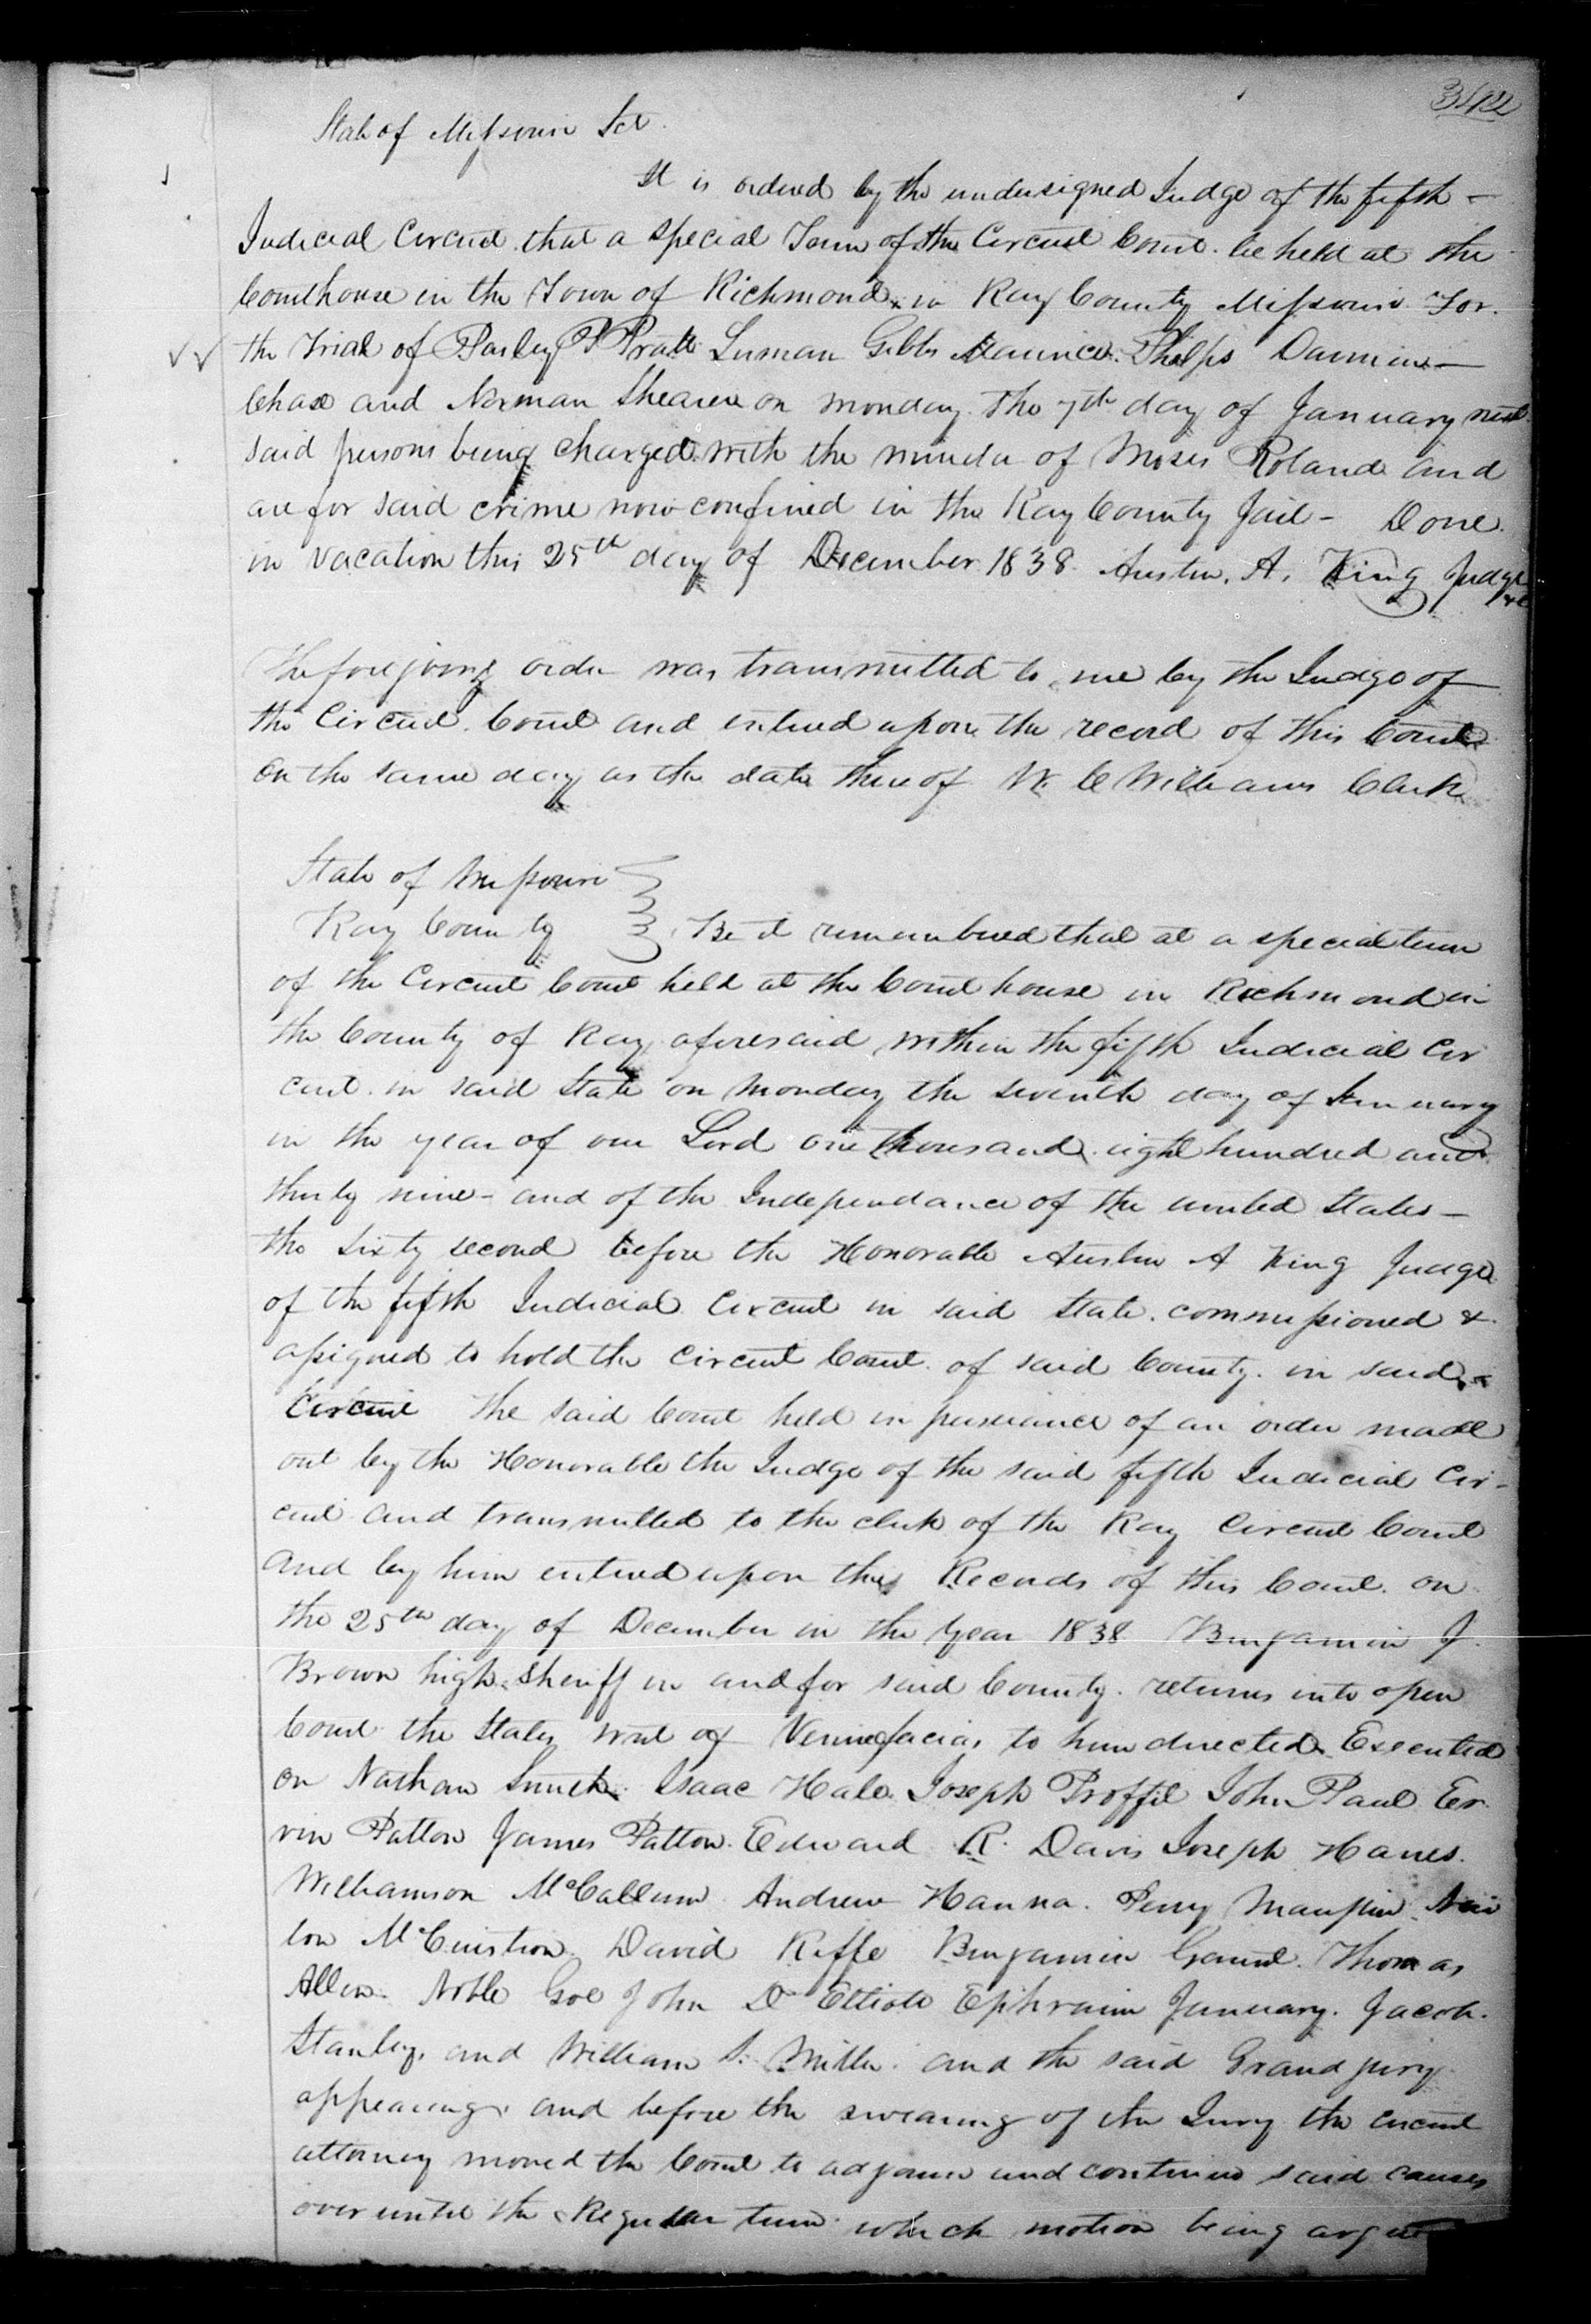 State of Missouri Sct.
It is ordered by the undersigned Judge of the fifth -
Judicial Circuit that a special Term of the Circuit Court be held at the
Courthouse in the Town of Richmond in Ray County Missouri For
the Trial of Parley P Pratt Luman Gibbs Maurice Phelps Darwin -
Chase and Norman Shearer on monday the 7th day of January next
said persons being charged with the murder of Moses Roland and
are for said crime now confined in the Ray County Jail - Done
in vacation this 25th day of December 1838. Austin, A. King Judge
&c
The foregoing order was transmitted to me by the Judge of
the Circuit Court and entered upon the record of this Court
on the same day as the date there of W. C Williams Clerk
State of Missouri
Ray County } Be it remembered that at a special term
of the Circuit Court held at the Court house in Richmond in
the County of Ray aforesaid within the fifth Judicial Cir
cuit in said State on monday the seventh day of January
in the year of our Lord one thousand eight hundred and
thirty nine - and of the Independance of the united States -
the sixty second before the Honorable Austin A King Judge
of the fifth Judicial Circuit in said State. commissioned &
assigned to hold the Circuit Court of said County. in said
Circuit The said Court held in pursuance of an order made
out by the Honorable the Judge of the said fifth Judicial Cir-
cuit and transmitted to the clerk of the Ray Circuit Court
and by him entered upon the Records of this Court on
the 25th day of December in the year 1838 Benjamin J.
Brown high Sheriff in and for said County. returns into open
Court the States writ of Venirefacias to him directed Executed
on Nathan Isaac Hale Joseph Proffit John Paul Er
vin Patton James Patton. Edward R. Davis Joseph Hanes.
Williamson McCallum Andrew Hanna. Perry Maupin
ton McCuistion David Riffe Benjamin Gaunt. Thomas
Allen. Noble Goe John D Elliott Ephraim January. Jacob.
Stanley, and William S. Miller. and the said Grand jury
appearing, and before the swearing of the Jury the circuit
attorney moved the Court to adjourn and continue said causes
over until the Regular term which motion being